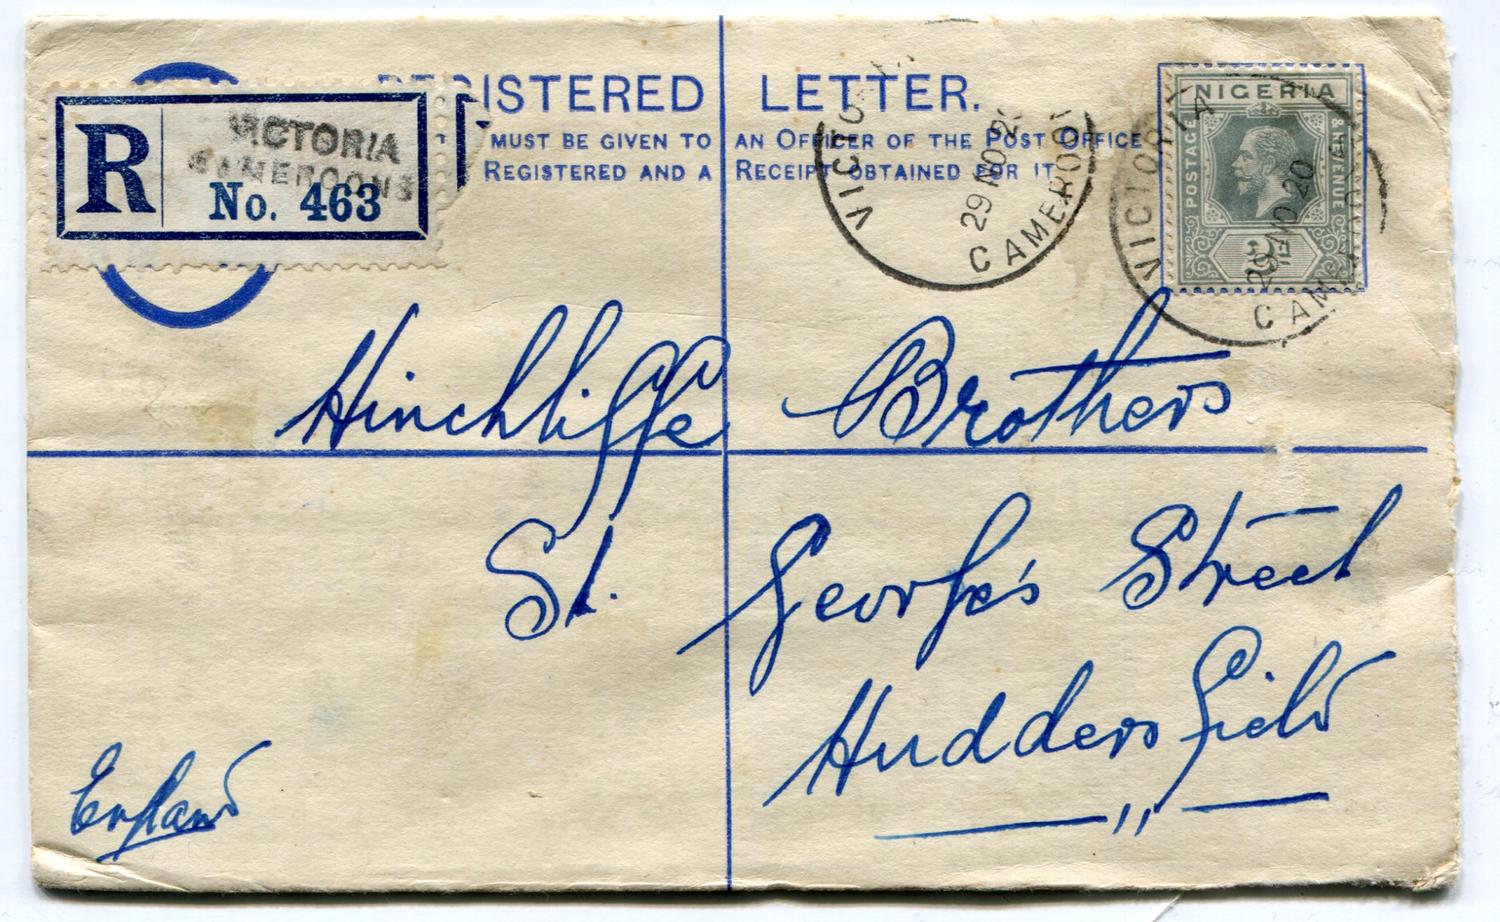 REGISTERED LETTER.
MUST BE GIVEN TO AN OFFICER OF THE POST OFFICE
REGISTERED AND A RECEIPT OBTAINED FOR IT
R
VICTORIA
CAMEROONS
No. 463
VICTO
29 NO 2
CAMEROO
NIGERIA
POSTAGE & REVENUE
VICTORIA
29 NO 20
CAM
Hinchliffe Brothers
St. George's Street
Huddersfield
England